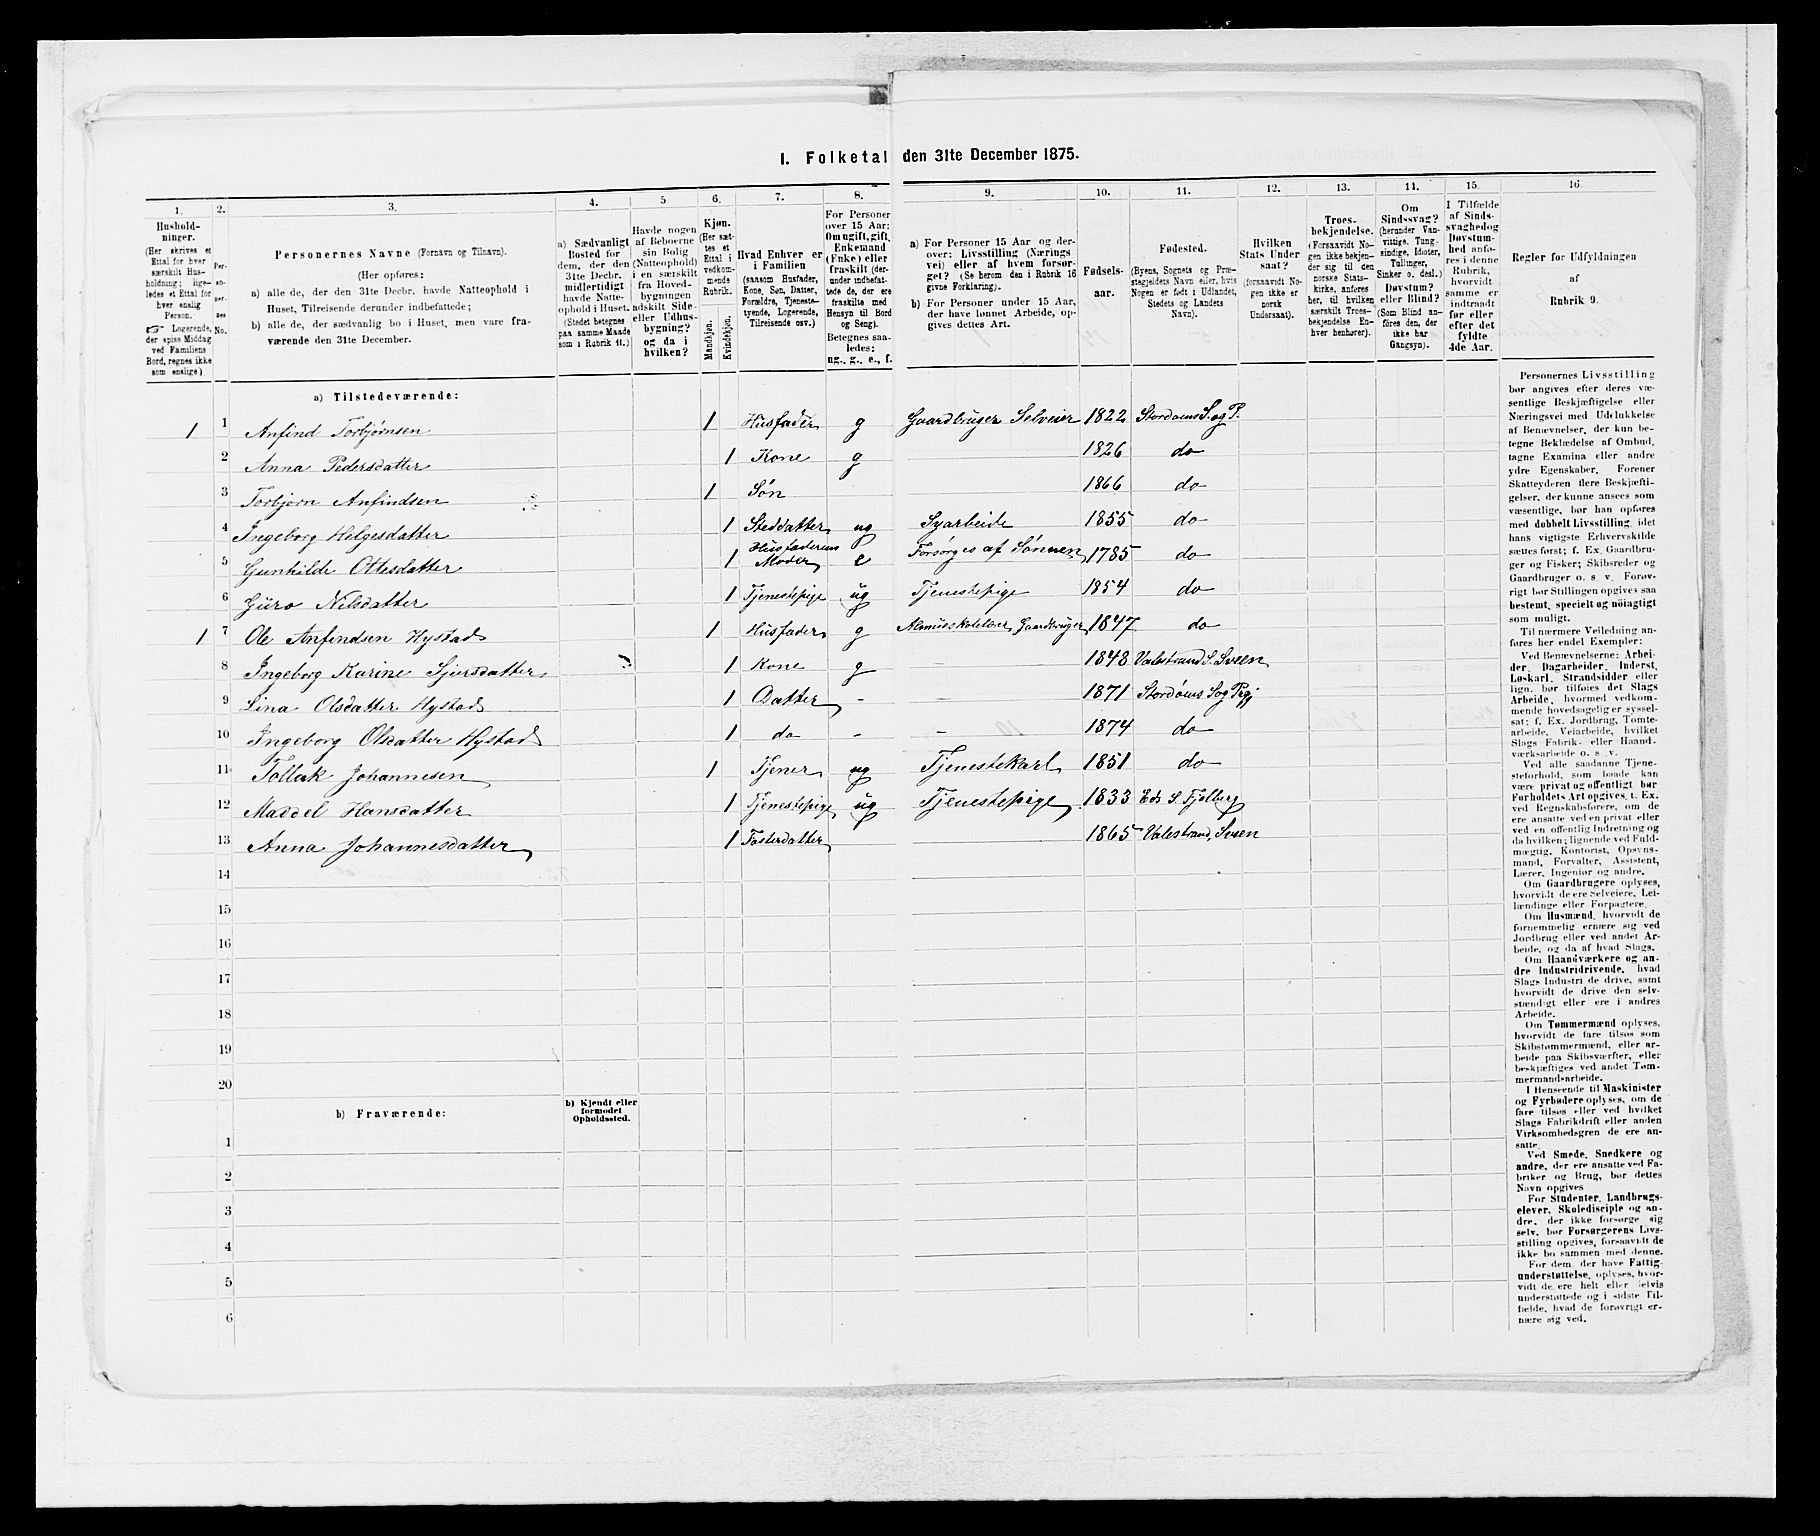 1. Folketal den 31te December 1875.
1. 2. 3. 4. 5 6. 7. 8. 9. 10. 11. 12. 13. 14. 15. 16.
Hushold-
ninger.
(Her skrives et
Ettal for hver
særskilt Hus-
holdning; lige-
ledes et Ettal for
hver enslig
Person.
☞ Logerende,
der spise Middag
ved Familiens
Bord, regnes ikke
som enslige).
Per-
so-
ner-
nes
No.
Personernes Navne (Fornavn og Tilnavn).
(Her opføres:
a) alle de, der den 31te Decbr. havde Natteophold i
Huset, Tilreisende derunder indbefattede;
b) alle de, der sædvanlig bo i Huset, men vare fra-
værende den 31te December.
a) Sædvanligt
Bosted for
dem, der den
31te Decbr.
midlertidigt
havde Natte-
ophold i Huset.
(Stedet betegnes
paa samme Maade
som i Rubrik 11.)
Havde nogen
af Beboerne
sin Bolig
(Natteophold)
i en særskilt
fra Hoved-
bygningen
adskilt Side-
eller Udhus-
bygning?
og da i
hvilken?
Kjøn.
(Her sæt-
tes et
Ettal i
vedkom-
mende
Rubrik.
Mandkjøn.
Kvindekjøn.
Hvad Enhver er
i Familien
(saasom Husfader,
Kone, Søn, Datter,
Forældre, Tjeneste-
tyende, Logerende,
Tilreisende osv.)
For Personer
over 15 Aar:
Om ugift, gift,
Enkemand
(Enke) eller
fraskilt (der-
under indbefat-
tede de, der ere
fraskilte med
Hensyn til Bord
og Seng).
Betegnes saa-
ledes:
ug., g., e., f.
a) For Personer 15 Aar og der-
over: Livsstilling (Nærings
vei) eller af hvem forsør-
get? (Se herom den i Rubrik 16
givne Forklaring).
b) For Personer under 15 Aar,
der have lønnet Arbeide, op-
gives dettes Art.
Fødsels-
aar.
Fødested.
(Byens, Sognets og Præ-
stegjeldets Navn eller, hvis
Nogen er født i Udlandet,
Stedets og Landets
Navn).
Hvilken
Stats Under
saat?
(forsaavidt No-
gen ikke er
norsk
Undersaat).
Troes-
bekjendelse.
(Forsaavidt No-
gen ikke bekjen-
der sig til den
norske Stats-
kirke, anføres
her, til hvilken
særskilt Troes-
bekjendelse En-
hver henhører).
Om
Sindssvag?
(herunder Van-
vittige, Tung-
sindige, Idioter,
Tullinger,
Sinker o. desl.)
Døvstum?
eller Blind?
(Som Blind an-
føres den, der
ikke har
Gangsyn).
I Tilfælde
af Sinds-
svaghed og
Døvstum-
hed anfø-
res i denne
Rubrik,
hvorvidt
samme er
indtraadt
før eller
efter det
fyldte
4de Aar.
Regler for Udfyldningen
af
Rubrik 9.
a) Tilstedeværende:
1 1 Anfind Torbjørnsen 1 Husfader g Gaardbruger Selveier 1822 Stordøens S. og P.
2 Anna Pedersdatter 1 Kone g 1826 do
3 Torbjørn Anfindsen 1 Søn 1866 do
4 Ingeborg Helgesdatter 1 Steddatter ug Syarbeide 1855 do
5 Gunhilde Ottesdatter 1 Husfaderens Moder e Forsørges af Sønnen 1785 do
6 Guro Nilsdatter 1 Tjenestepige ug Tjenestepige 1854 do
1 7 Ole Anfindsen Hystad 1 Husfader g Almueskolelærer Gaardbruger 1847 do
8 Ingeborg Karine Sjursdatter 1 Kone g 1848 Valestrand S. Sveen
9 Lina Olsdatter Hystad 1 Datter - - 1871 Stordøens S og Prgj
10 Ingeborg Olsdatter Hystad 1 do - - 1874 do
11 Tollak Johannesen 1 Tjener ug Tjenestekarl 1851 do
12 Maddel Hansdatter 1 Tjenestepige ug Tjenestepige 1833 Eds S. Fjelberg
13 Anna Johannesdatter 1 Fosterdatter 1865 Valestrand, Sveen
14
15
16
17
18
19
20
b) Fraværende:
b) Kjendt eller
formodet
Opholdssted.
1
2
3
4
5
6
Personernes Livsstilling
bør angives efter deres væ-
sentlige Beskjæftigelse eller
Næringsvei med Udelukkelse
af Benævnelser, der kun be-
tegne Beklædelse af Ombud,
tagne Examina eller andre
ydre Egenskaber. Forener
Skatteyderen flere Beskjæfti-
gelser, der kunne ansees som
væsentlige, bør han opføres
med dobbelt Livsstilling, idet
hans vigtigste Erhvervskilde
sættes først; f. Ex. Gaardbru-
ger og Fisker; Skibsreder og
Gaardbruger o. s. v. Forøv-
rigt bør Stillingen opgives saa
bestemt, specielt og nöiagtigt
som muligt.
Til nærmere Veiledning an-
føres her endel Exempler:
Ved Benævnelserne: Arbei-
der, Dagarbeider, Inderst,
Løskarl, Strandsidder eller
lign. bør tilføies det Slags
Arbeide, hvormed vedkom-
mende hovedsagelig er syssel-
sat; f. Ex. Jordbrug, Tomte-
arbeide, Veiarbeide, hvilket
Slags Fabrik- eller Haand-
værksarbeide o. s. v.
Ved alle saadanne Tjene-
steforhold, som baade kan
være privat og offentligt, bør
Forholdets Art opgives, t. Ex.
ved Regnskabsførere, om de
ere ansatte ved en privat eller
ved en offentlig Indretning og
da hvilken; lignende ved Fuld-
mægtig, Kontorist, Opsyns-
mand, Forvalter, Assistent,
Lærer, Ingeniør og andre.
Om Gaardbrugere oplyses,
hvorvidt de ere Selveiere, Lei-
lændinge eller Forpagtere.
Om Husmænd, hvorvidt de
fornemmelig ernære sig ved
Jordbrug eller ved andet Ar-
beide, og da af hvad Slags.
Om Haandværkere og an-
dre Industridrivende, hvad
Slags Industri de drive, samt
hvorvidt de drive den selv-
stændigt eller ere i andres
Arbeide.
Om Tømmermænd oplyses,
hvorvidt de fare tilsøs som
Skibstømmermænd, eller ar-
beide paa Skibsværfter, eller
beskjæftiges ved andet Tøm-
mermandsarbeide.
I Henseende til Maskinister
og Fyrbødere oplyses, om de
fare tilsøs eller ved hvilket
Slags Fabrikdrift eller anden
Virksomhedsgren de ere an-
satte.
Ved Smede, Snedkere og
andre, der ere ansatte ved Fa-
briker og Brug, bør dettes
Navn opgives
For Studenter, Landbrugs-
elever, Skoledisciple og an-
dre, der ikke forsørge sig
selv, bør Forsørgerens Livs-
stilling opgives, forsaavidt de
ikke bo sammen med denne.
For dem, der have Fattig-
understøttelse, oplyses, hvor-
vidt de ere helt eller delvis
understøttede og i sidste Til-
fælde, hvad de forøvrigt er-
nære sig ved.